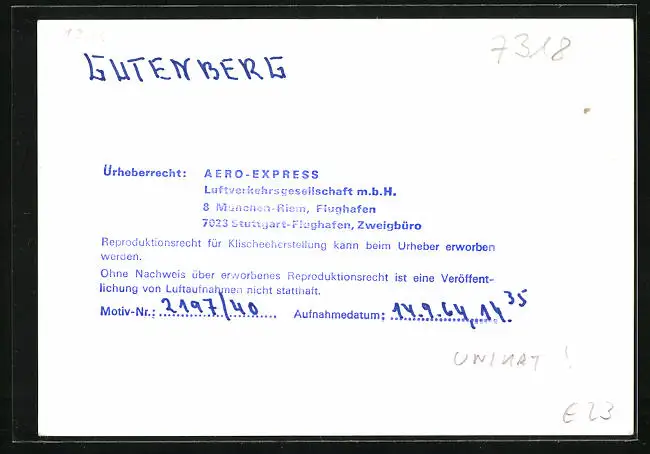 7318
GUTENBERG
Urheberrecht: AERO-EXPRESS
Luftverkehrsgesellschaft m.b.H.
8 München-Riem, Flughafen
7023 Stuttgart-Flughafen, Zweigbüro
Reproduktionsrecht für Klischeeherstellung kann beim Urheber erworben
werden.
Ohne Nachweis über erworbenes Reproduktionsrecht ist eine Veröffent-
lichung von Luftaufnahmen nicht statthaft.
Motiv-Nr.: 2197/40 Aufnahmedatum: 14.9.64, 14.35
UNIKAT !
€23